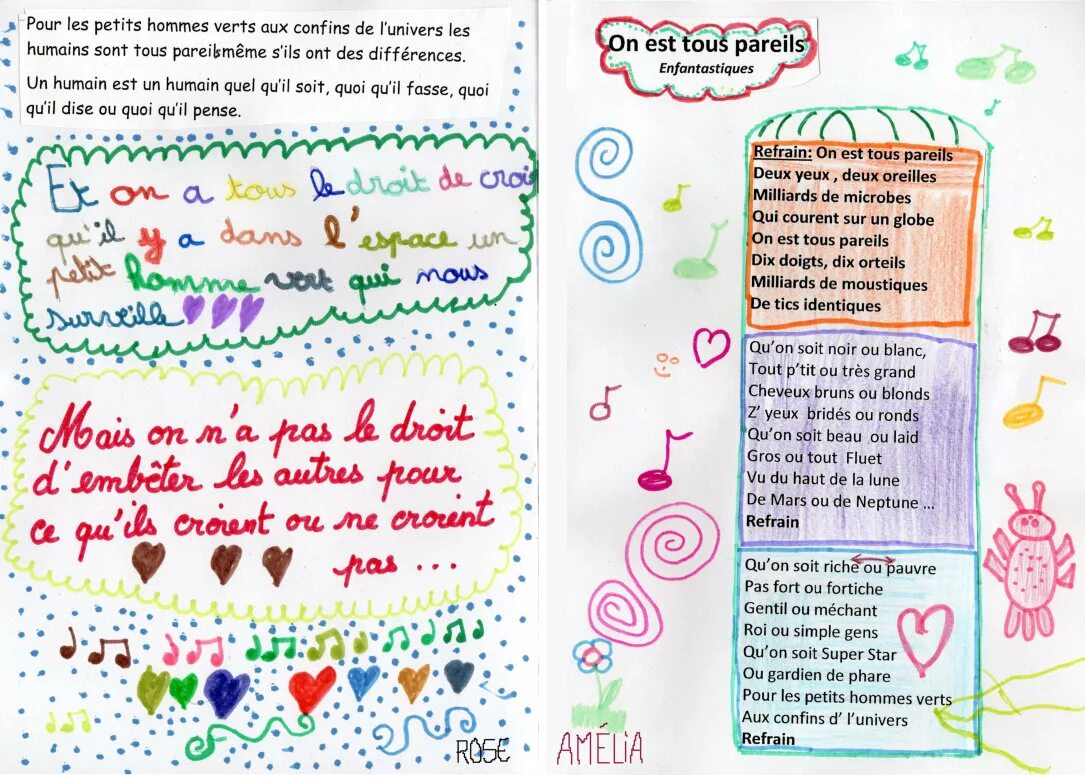 Pour les petits hommes verts aux confins de l'univers les
humains sont tous pareils même s'ils ont des différences.
Un humain est un humain quel qu'il soit, quoi qu'il fasse, quoi
qu'il dise ou quoi qu'il pense.
Et on a tous le droit de croi
qu'il y a dans l'espace un
petit homme vert qui nous
surveille
Mais on n'a pas le droit
d'embêter les autres pour
ce qu'ils croient ou ne croient
pas ...
ROSE
On est tous pareils
Enfantastiques
Refrain: On est tous pareils
Deux yeux , deux oreilles
Milliards de microbes
Qui courent sur un globe
On est tous pareils
Dix doigts, dix orteils
Milliards de moustiques
De tics identiques
Qu'on soit noir ou blanc,
Tout p'tit ou très grand
Cheveux bruns ou blonds
Z' yeux bridés ou ronds
Qu'on soit beau ou laid
Gros ou tout Fluet
Vu du haut de la lune
De Mars ou de Neptune ...
Refrain
Qu'on soit riche ou pauvre
Pas fort ou fortiche
Gentil ou méchant
Roi ou simple gens
Qu'on soit Super Star
Ou gardien de phare
Pour les petits hommes verts
Aux confins d' l'univers
Refrain
AMÉLIA